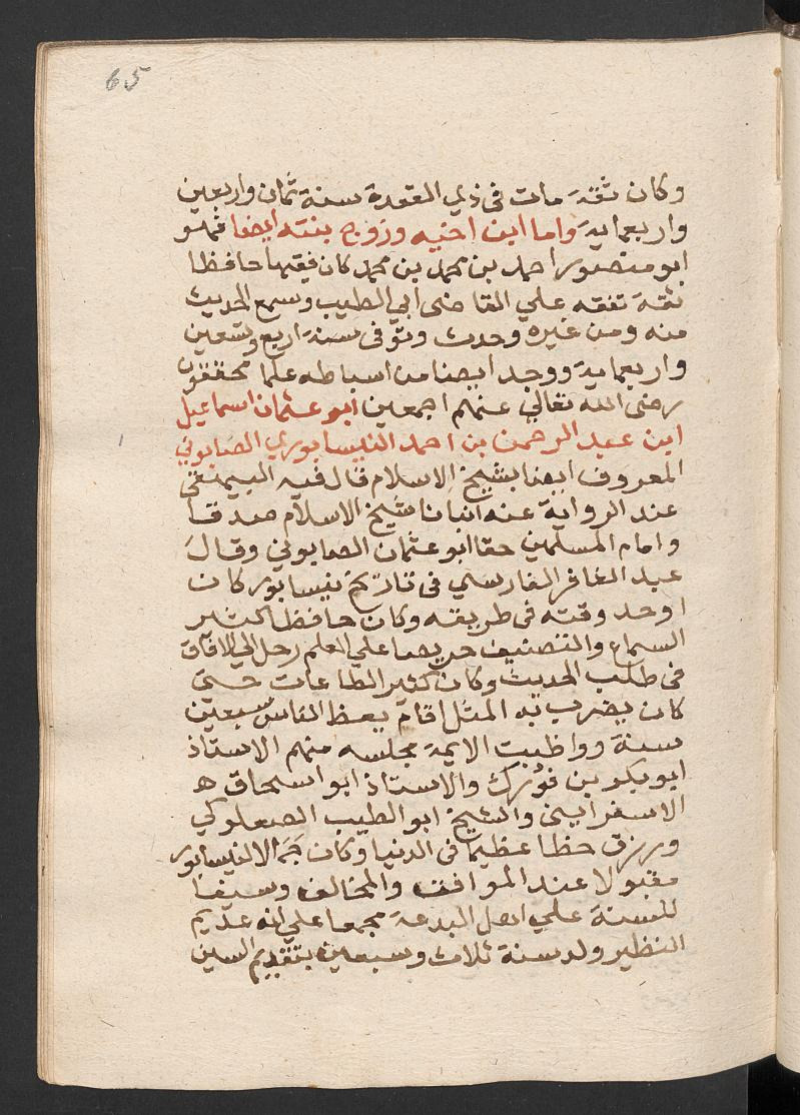 65
وكان ثقة مات في ذي القعدة سنة ثمان واربعين
واربعماية واما ابن اخيه وزوج بنته ايضا فهو
ابو منصور احمد بن محمد بن محمد كان فقيها حافظا
ثقة تفقه علي القاضي ابي الطيب وسمع الحديث
منه ومن غيره وحدث وتوفي سنة اربع وتسعين
واربعماية ووجد ايضا من اسباطه علما محققون
رضي الله تعالي عنهم اجمعين ابو عثمان اسماعيل
ابن عبد الرحمن بن احمد النيسابوري الصابوني
المعروف ايضا بشيخ الاسلام قال فيه البيهقي
عند الرواية عنه انبانا شيخ الاسلام صدقا
وامام المسلمين حقا ابو عثمان الصابوني وقال
عبد الغافر الفارسي في تاريخ نيسابور كان
اوحد وقته في طريقه وكان حافظا كثير
السماع والتصنيف حريصا علي العلم رحل الي الافاق
في طلب الحديث وكان كثير الطاعات حتي
كان يضرب به المثل اقام يعظ الناس سبعين
سنة وواظبت الايمة مجلسه منهم الاستاذ
ابو بكر بن فورك والاستاذ ابو اسحاق ه
الاسفرايني والشيخ ابو الطيب الصعلوكي
ورزق حظا عظيما في الدنيا وكان جمالا لنيسابور
مقبولا عند الموافق والمخالف وسيفا
للسنة علي اهل البدعة مجمعا علي انه عديم
النظير ولد سنة ثلاث وسبعين بتقديم السين